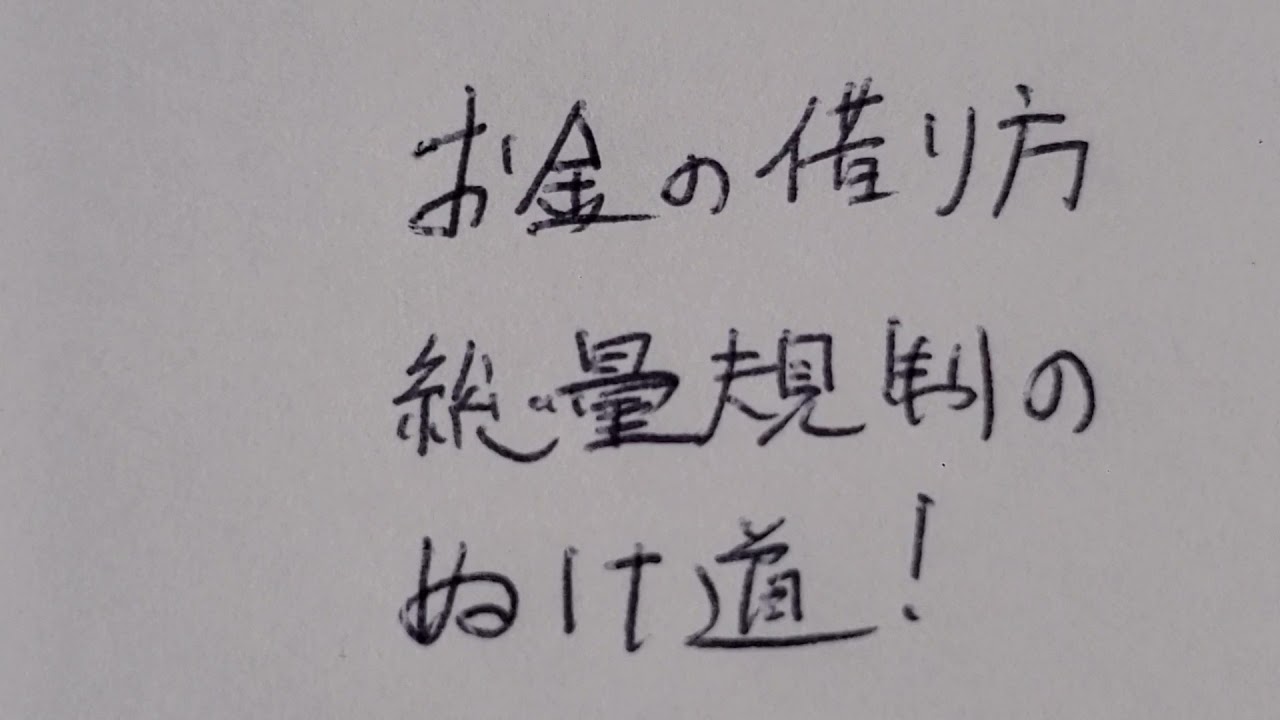 お金の借り方
総量規制の
ぬけ道！